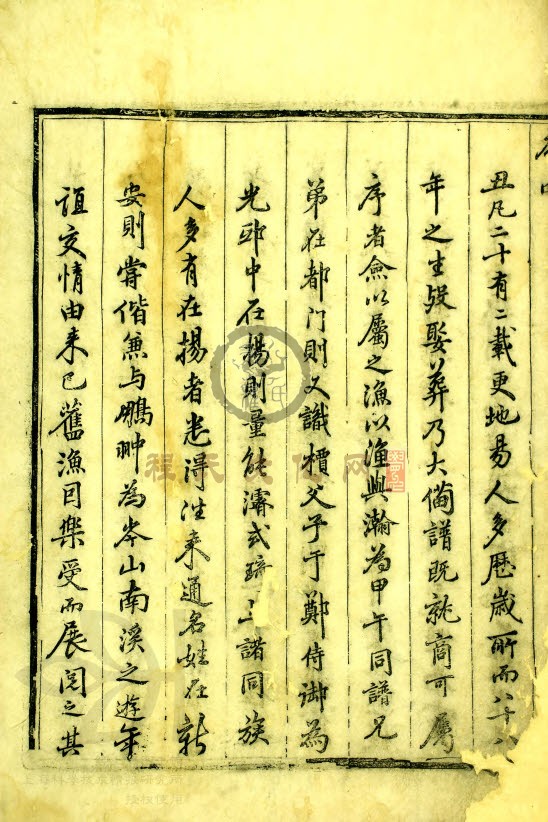 丑凡二十有二載更地易人多歷歲所而八十八
年之生殁娶葬乃大備譜既就商可屬
序者僉以屬之漁以漁與瀚為甲午同譜兄
弟在都門則又識檟父子于鄭侍御為
光邸中在揚則量能濬式疏上諸同族
人多有在揚者悉得往來通名姓在新
安則嘗偕兼與鵬翀為岑山南溪之遊年
誼交情由來已舊漁因樂受而展閱之其
程氏文化网
授权使用